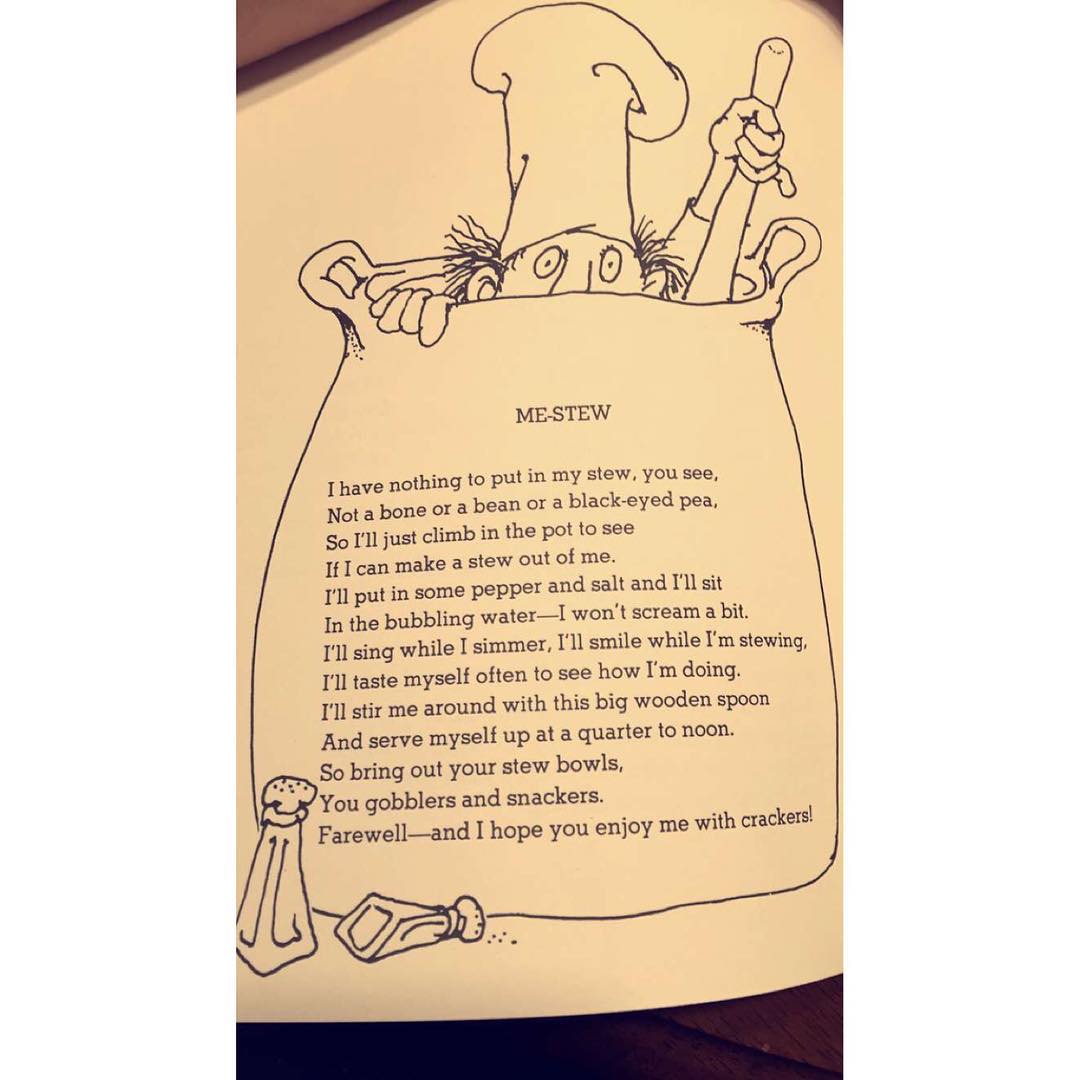 ME-STEW
I have nothing to put in my stew, you see,
Not a bone or a bean or a black-eyed pea,
So I'll just climb in the pot to see
If I can make a stew out of me.
I'll put in some pepper and salt and I'll sit
In the bubbling water—I won't scream a bit.
I'll sing while I simmer, I'll smile while I'm stewing,
I'll taste myself often to see how I'm doing.
I'll stir me around with this big wooden spoon
And serve myself up at a quarter to noon.
So bring out your stew bowls,
You gobblers and snackers.
Farewell—and I hope you enjoy me with crackers!